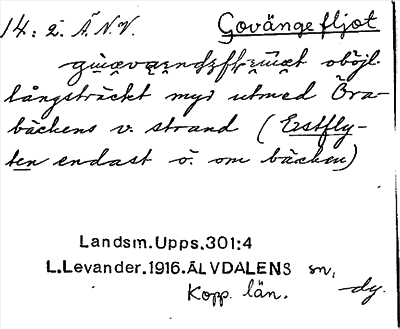 14: 2. Ä.N.V. Govängefljot
oböjl.
långsträckt myr utmed Öra-
bäckens v. strand (Erstfly-
ten endast ö. om bäcken)
Landsm.Upps.301:4
L.Levander.1916.ÄLVDALENS sn,
Kopp. län. dy.